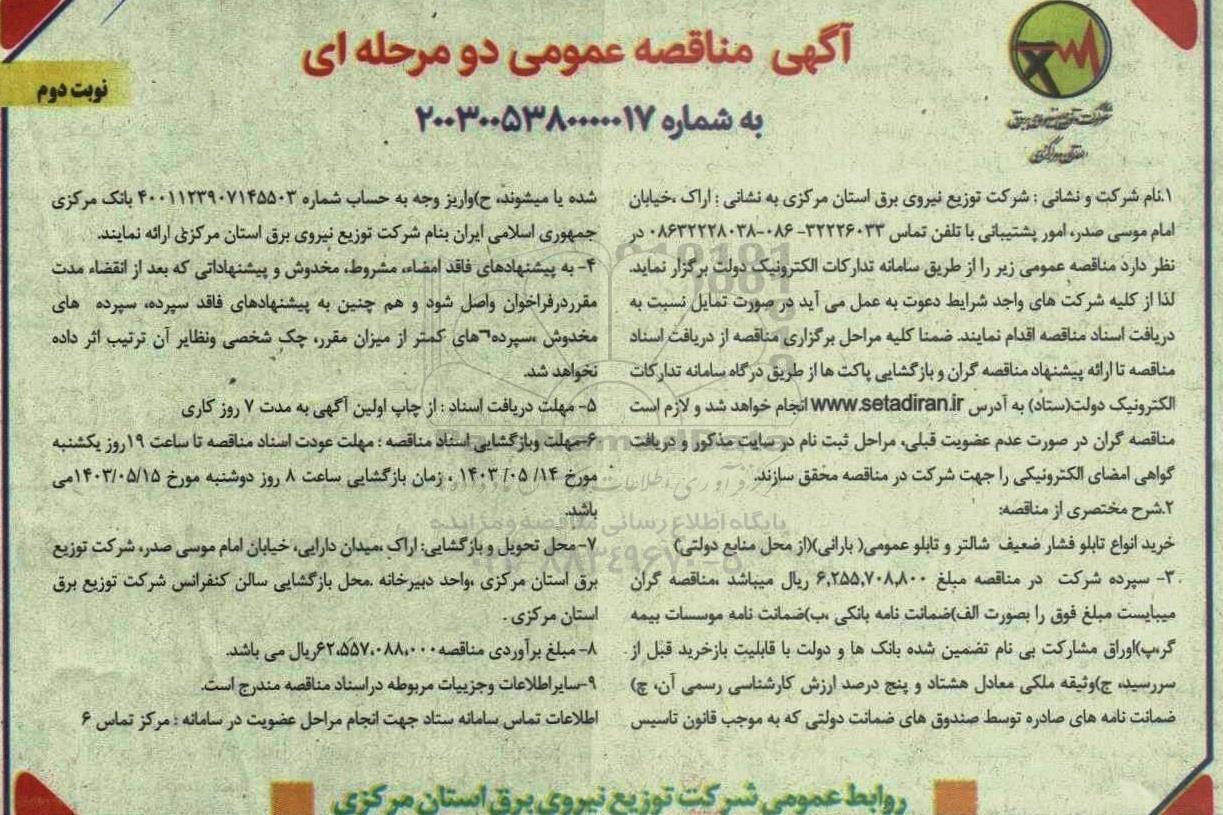 آگهی مناقصه عمومی دو مرحله ای
نوبت دوم
به شماره ۲۰۰۳۰۰۵۳۸۰۰۰۰۰۱۷
۱.نام شرکت و نشانی : شرکت توزیع نیروی برق استان مرکزی به نشانی : اراک ،خیابان
امام موسی صدر، امور پشتیبانی با تلفن تماس ۳۲۲۲۶۰۳۳- ۰۸۶-۰۸۶۳۲۲۲۸۰۳۸ در
نظر دارد مناقصه عمومی زیر را از طریق سامانه تدارکات الکترونیک دولت برگزار نماید.
لذا از کلیه شرکت های واجد شرایط دعوت به عمل می آید در صورت تمایل نسبت به
دریافت اسناد مناقصه اقدام نمایند. ضمنا کلیه مراحل برگزاری مناقصه از دریافت اسناد
مناقصه تا ارائه پیشنهاد مناقصه گران و بازگشایی پاکت ها از طریق درگاه سامانه تدارکات
الکترونیک دولت(ستاد) به آدرس www.setadiran.ir انجام خواهد شد و لازم است
مناقصه گران در صورت عدم عضویت قبلی، مراحل ثبت نام در سایت مذکور و دریافت
گواهی امضای الکترونیکی را جهت شرکت در مناقصه محقق سازند.
۲.شرح مختصری از مناقصه:
خرید انواع تابلو فشار ضعیف شالتر و تابلو عمومی( بارانی)(از محل منابع دولتی)
۳- سپرده شرکت در مناقصه مبلغ ۶,۲۵۵,۷۰۸,۸۰۰ ریال میباشد ،مناقصه گران
میبایست مبلغ فوق را بصورت الف)ضمانت نامه بانکی ،ب)ضمانت نامه موسسات بیمه
گر،پ)اوراق مشارکت بی نام تضمین شده بانک ها و دولت با قابلیت بازخرید قبل از
سررسید، ج)وثیقه ملکی معادل هشتاد و پنج درصد ارزش کارشناسی رسمی آن، چ)
ضمانت نامه های صادره توسط صندوق های ضمانت دولتی که به موجب قانون تاسیس
شده یا میشوند، ح)واریز وجه به حساب شماره ۴۰۰۱۱۲۳۹۰۷۱۴۵۵۰۳ بانک مرکزی
جمهوری اسلامی ایران بنام شرکت توزیع نیروی برق استان مرکزی ارائه نمایند.
۴- به پیشنهادهای فاقد امضاء، مشروط، مخدوش و پیشنهاداتی که بعد از انقضاء مدت
مقرردرفراخوان واصل شود و هم چنین به پیشنهادهای فاقد سپرده، سپرده های
مخدوش ،سپرده های کمتر از میزان مقرر، چک شخصی ونظایر آن ترتیب اثر داده
نخواهد شد.
۵- مهلت دریافت اسناد : از چاپ اولین آگهی به مدت ۷ روز کاری
۶-مهلت وبازگشایی اسناد مناقصه : مهلت عودت اسناد مناقصه تا ساعت ۱۹روز یکشنبه
مورخ ۱۴/ ۰۵/ ۱۴۰۳ ، زمان بازگشایی ساعت ۸ روز دوشنبه مورخ ۱۴۰۳/۰۵/۱۵می
باشد.
۷- محل تحویل و بازگشایی: اراک ،میدان دارایی، خیابان امام موسی صدر، شرکت توزیع
برق استان مرکزی ،واحد دبیرخانه .محل بازگشایی سالن کنفرانس شرکت توزیع برق
استان مرکزی .
۸- مبلغ برآوردی مناقصه۶۲،۵۵۷،۰۸۸،۰۰۰ریال می باشد.
۹-سایراطلاعات وجزییات مربوطه دراسناد مناقصه مندرج است.
اطلاعات تماس سامانه ستاد جهت انجام مراحل عضویت در سامانه : مرکز تماس ۶
روابط عمومی شرکت توزیع نیروی برق استان مرکزی